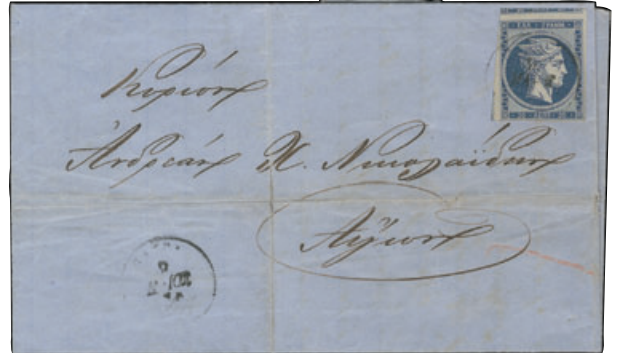 ΕΛΛ. ΓΡΑΜΜ.
20 ΛΕΠΤ. 20
Κύριον
Ἀνδρέαν Χ. Νικολαΐδην
Αἴγιον